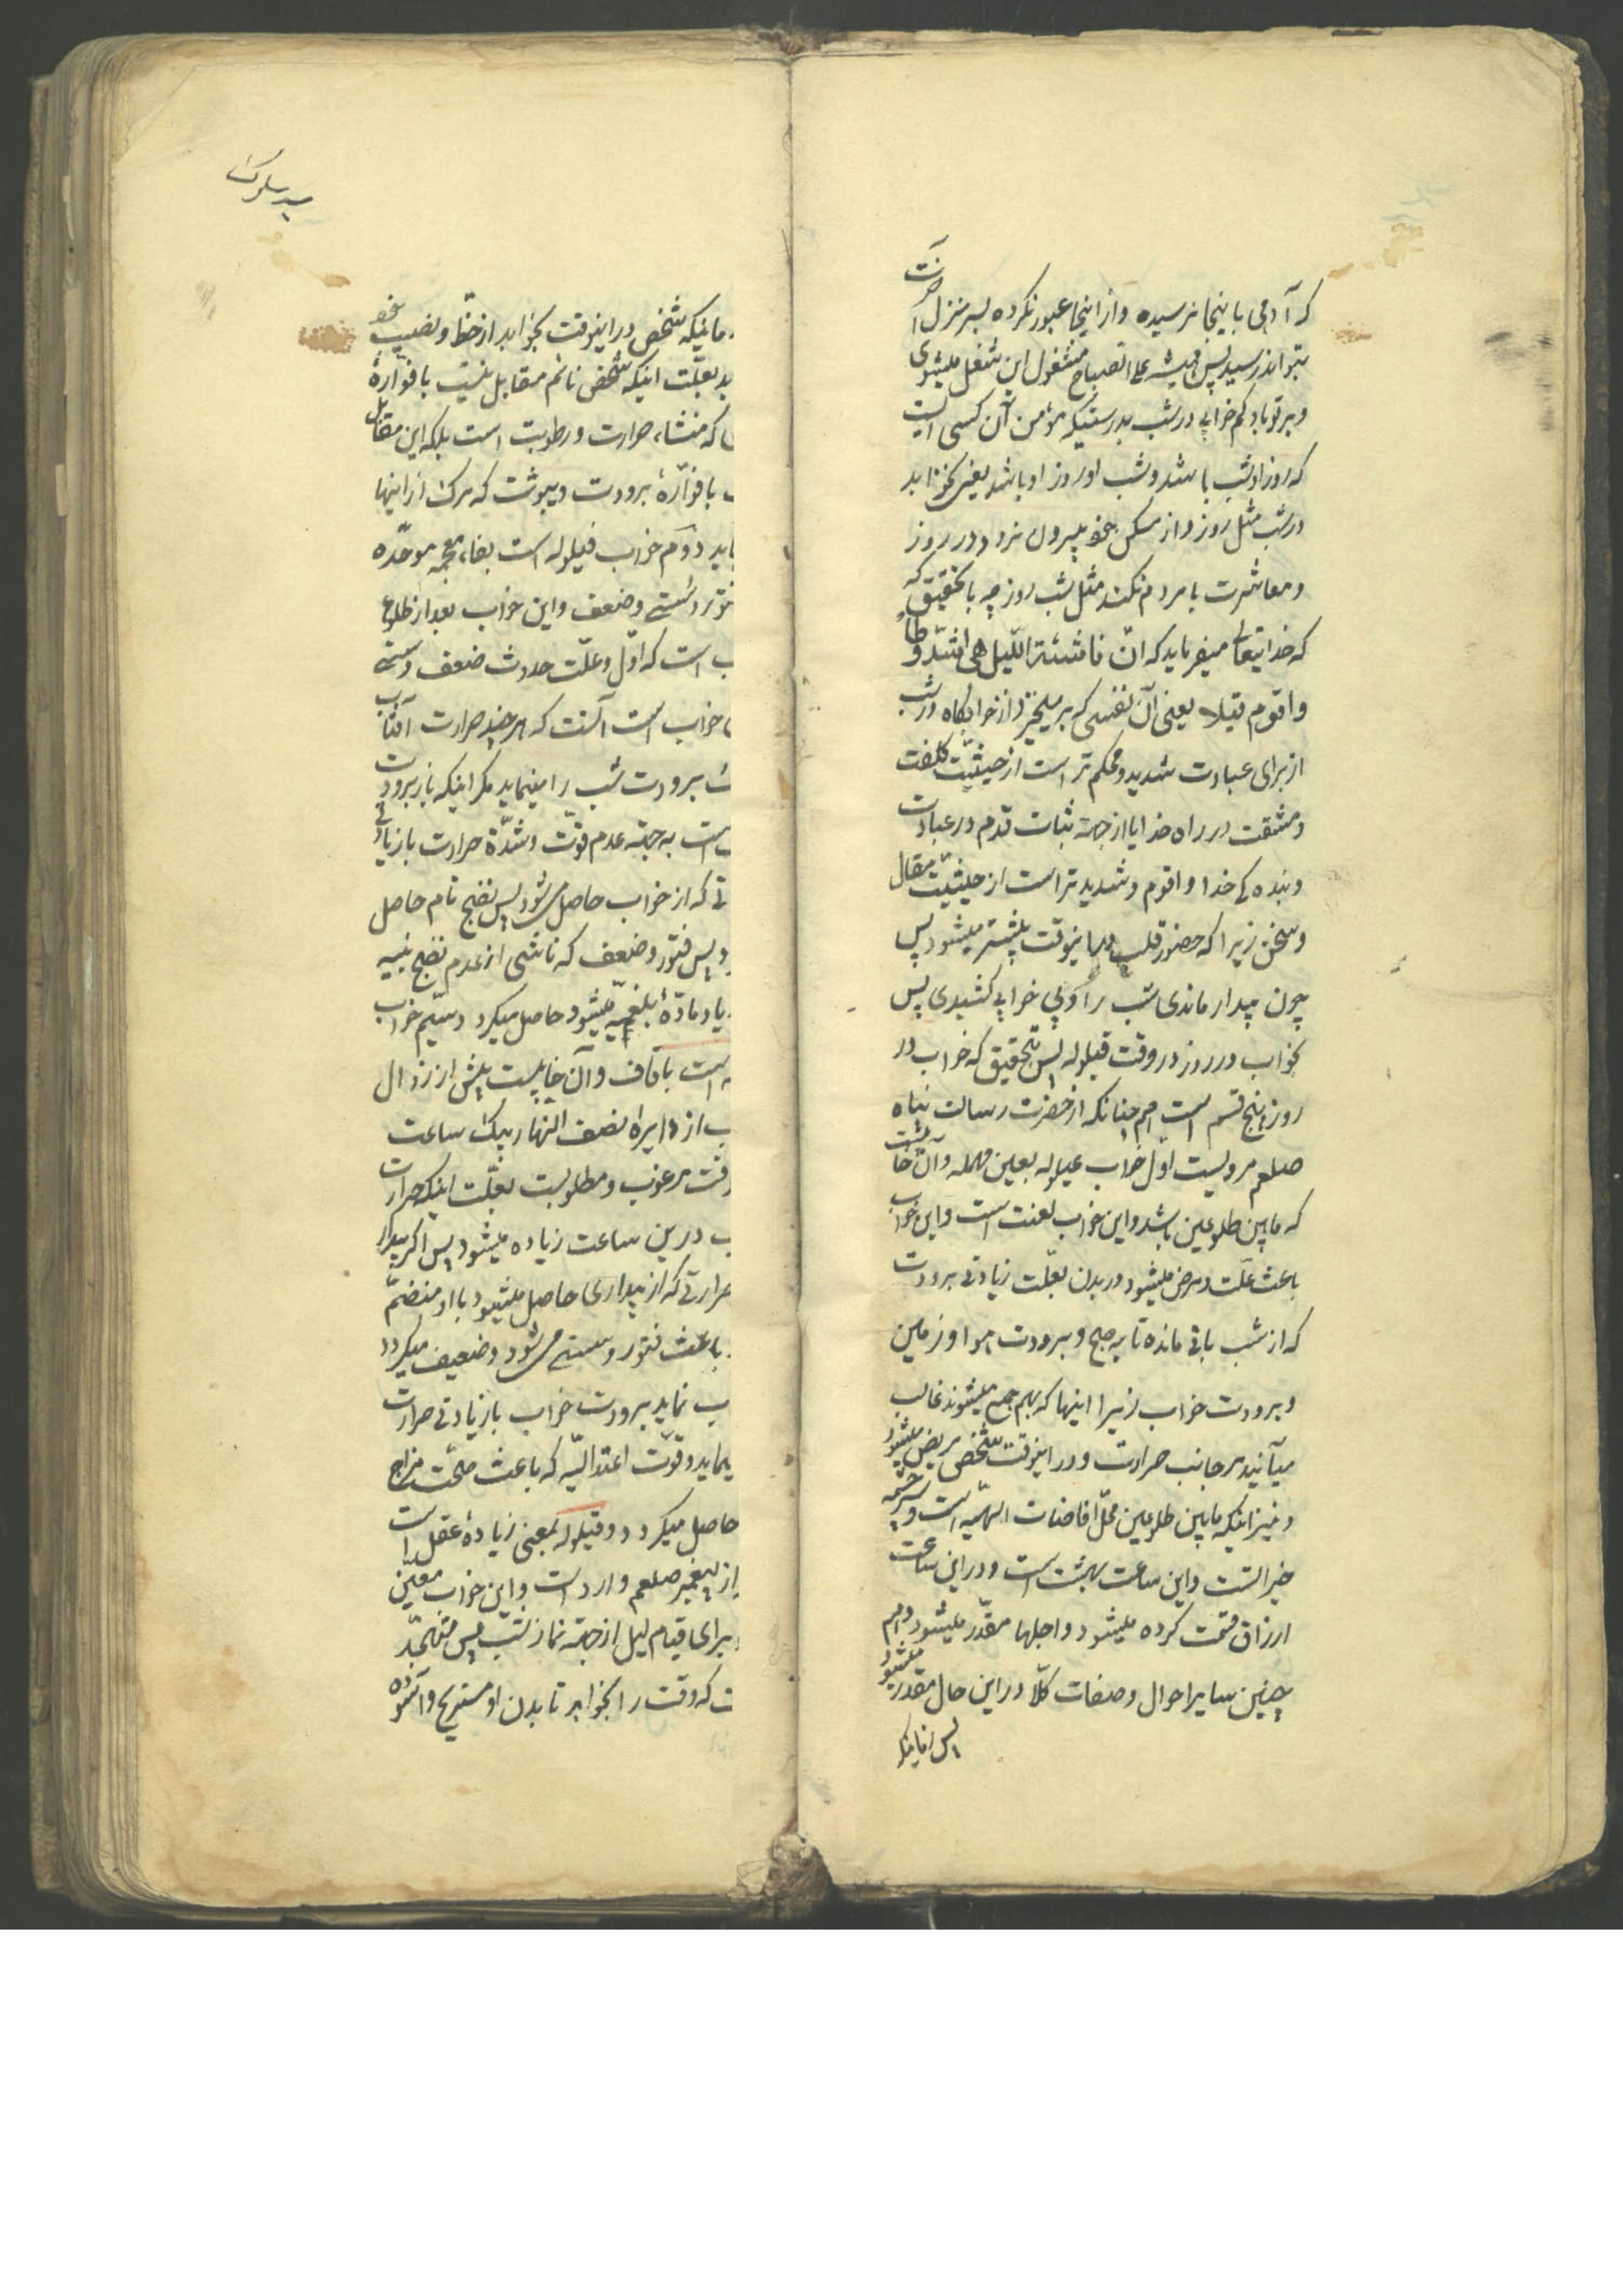 که آدمی باینجا نرسیده و از اینجا عبور نکرده بسر منزل آخرت
نتواند رسید پس همیشه علی الصباح مشغول این شغل میشوی
و بر تو باد کم خوابی در شب بدرستیکه مؤمن آن کسی است
که روز او شب باشد و شب او روز او باشد یعنی نخوابد
در شب مثل روز و از مسکن بیرون نرود در روز
و معاشرت با مردم نکند مثل شب روز چه بتحقیق که
که خدایتعالی میفرماید که انّ ناشئة اللّیل هی اشدّ وطأً
و اقوم قیلا یعنی آن نفسی که بر میخیزد از خوابگاه در شب
از برای عبادت شدید و محکم تر است از حیثیّت کلفت
و مشقت در راه خدا یا از جهة ثبات قدم در عبادت
و بنده کی خدا و اقوم و شدید تر است از حیثیّت مقال
و سخن زیرا که حضور قلب در اینوقت بیشتر میشود پس
چون بیدار ماندی شب را و بی خوابی کشیدی پس
بخواب در روز در وقت قیلوله پس بتحقیق که خواب در
روز پنج قسم است هم چنانکه از حضرت رسالت پناه
صلعم مرویست اوّل خواب عیلوله بعین مهمله و آن خوابیست
که مابین طلوعین باشد و این خواب لعنت است و این خواب
باعث علّت و مرض میشود در بدن بعلّت زیادتی برودت
که از شب باقی مانده تا به صبح و برودت هوا و زمین
و برودت خواب زیرا اینها که بهم جمع میشوند غالب
میآیند بر جانب حرارت و در اینوقت شخص مریض میشود
و نیز اینکه مابین طلوعین محلّ افاضات الهیّه است و سرچشمه
خیراتست و این ساعت بهشت است و در این ساعت
ارزاق قسمت کرده میشود و اجلها مقدّر میشود و هم
چنین سایر احوال و صفات کلاّ در این حال مقدّر میشود
پس زمانیکه
مانیکه شخص در اینوقت بخوابد از حظّ و نصیب خود
بد بعلّت اینکه شخص نائم مقابل نیست با فوّارهٔ
که منشاء حرارت و رطوبت است بلکه این مقابل
با فوّارهٔ برودت و یبوشت که مرک از اینها
ید دوّم خواب فیلوله است بفاء معجمه موحّده
فتور و سستی و ضعف و این خواب بعد از طلوع
است که اوّل و علّت حدوث ضعف و سستی
خواب است آنست که هر چند حرارت آفتاب
برودت شب را مینماید مکر اینکه باز برودت
است به جهة عدم قوّت و شدّة حرارت با زیادتی
تی که از خواب حاصل میشود پس نضج تام حاصل
و پس فتور و ضعف که ناشی از عدم نضج بنیه
یاد مادّهٔ بلغمیّه میشود حاصل میکرد و سیّم خواب
است با قاف و آن خوابیست پیش از زوال
از دایره نصف النهار بیک ساعت
مرغوب و مطلوبست بعلّت اینکه حرارت
درین ساعت زیاده میشود پس اکر بیدار
حرارتی که از بیداری حاصل میشود با او منضمّ
باعث فتور و سستی میشود و ضعیف میکردد
ب نماید برودت خواب با زیادتی حرارت
یماید و قوّت اعتدالیّه که باعث صحّت مزاج
حاصل میکردد و قیلوله بمعنی زیادهٔ عقل است
از پیغمبر صلعم وارد است و این خواب معیّن
برای قیام لیل از جهة نماز شب پس متهجّد
ت که وقت را بخوابد تا بدن او مستریح و آسوده